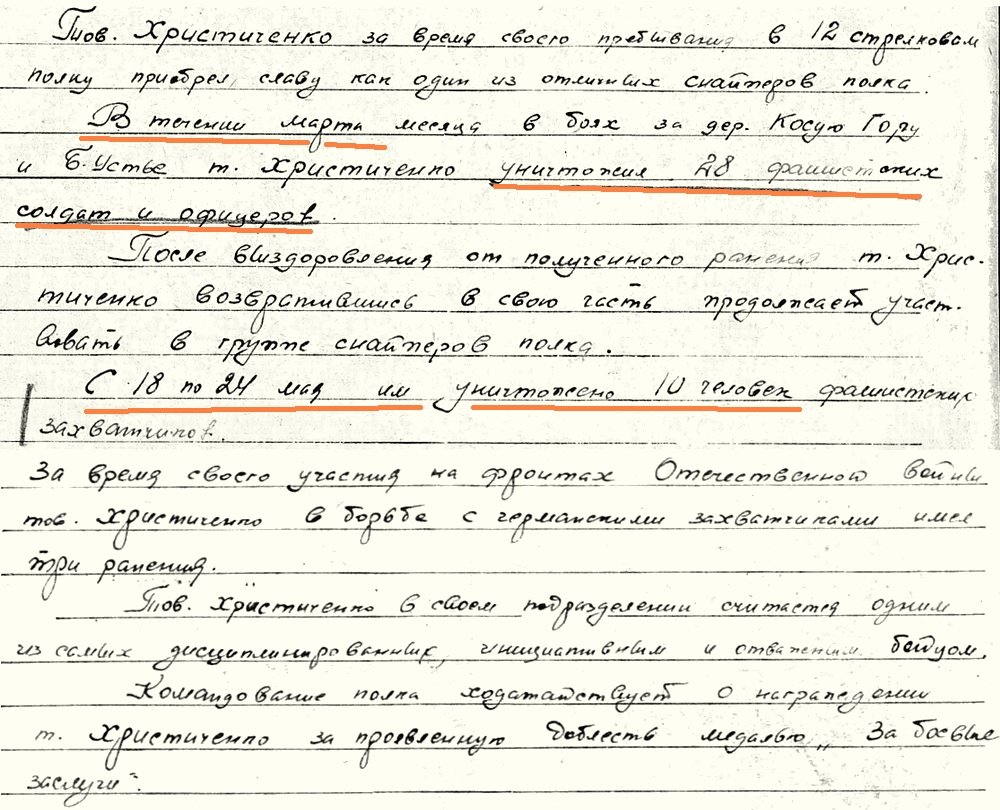 Тов. Христиченко за время своего пребывания в 12 стрелковом
полку приобрел славу как один из отличных снайперов полка.
В течении марта месяца в боях за дер. Косую Гору
и Б. Устье т. Христиченко уничтожил 28 фашистских
солдат и офицеров.
После выздоровления от полученного ранения т. Хрис-
тиченко возвратившись в свою часть продолжает участ-
вовать в группе снайперов полка.
С 18 по 24 мая им уничтожено 10 человек фашистских
захватчиков.
За время своего участия на фронтах Отечественной войны
тов. Христиченко в борьбе с германскими захватчиками имел
три ранения.
Тов. Христиченко в своем подразделении считается одним
из самых дисциплинированных, инициативным и отважным бойцом.
Командование полка ходатайствует о награждении
т. Христиченко за проявленную доблесть медалью „За боевые
заслуги".